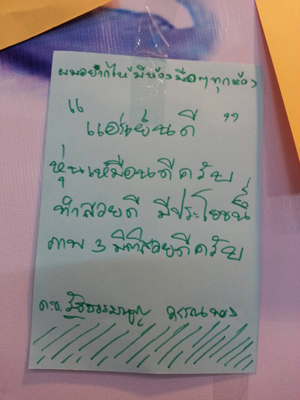 ผมอยากให้มีห้องมือๆทุกห้อง
"แอร์เย็นดี"
หุ่นเหมือนดีครับ
ทำสวยดี มีประโยชน์
ภาพ 3 มิติสวยดีครับ
ด.ช.